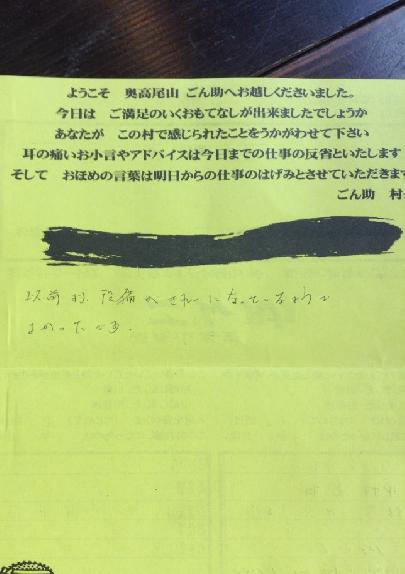 ようこそ　奥高尾山　ごん助へお越しくださいました。
今日は　ご満足のいくおもてなしが出来ましたでしょうか
あなたが　この村で感じられたことをうかがわせて下さい
耳の痛いお小言やアドバイスは今日までの仕事の反省といたします
そして　おほめの言葉は明日からの仕事のはげみとさせていただきます
ごん助　村
以前より 設備が きれいになっているようで
よかったです.